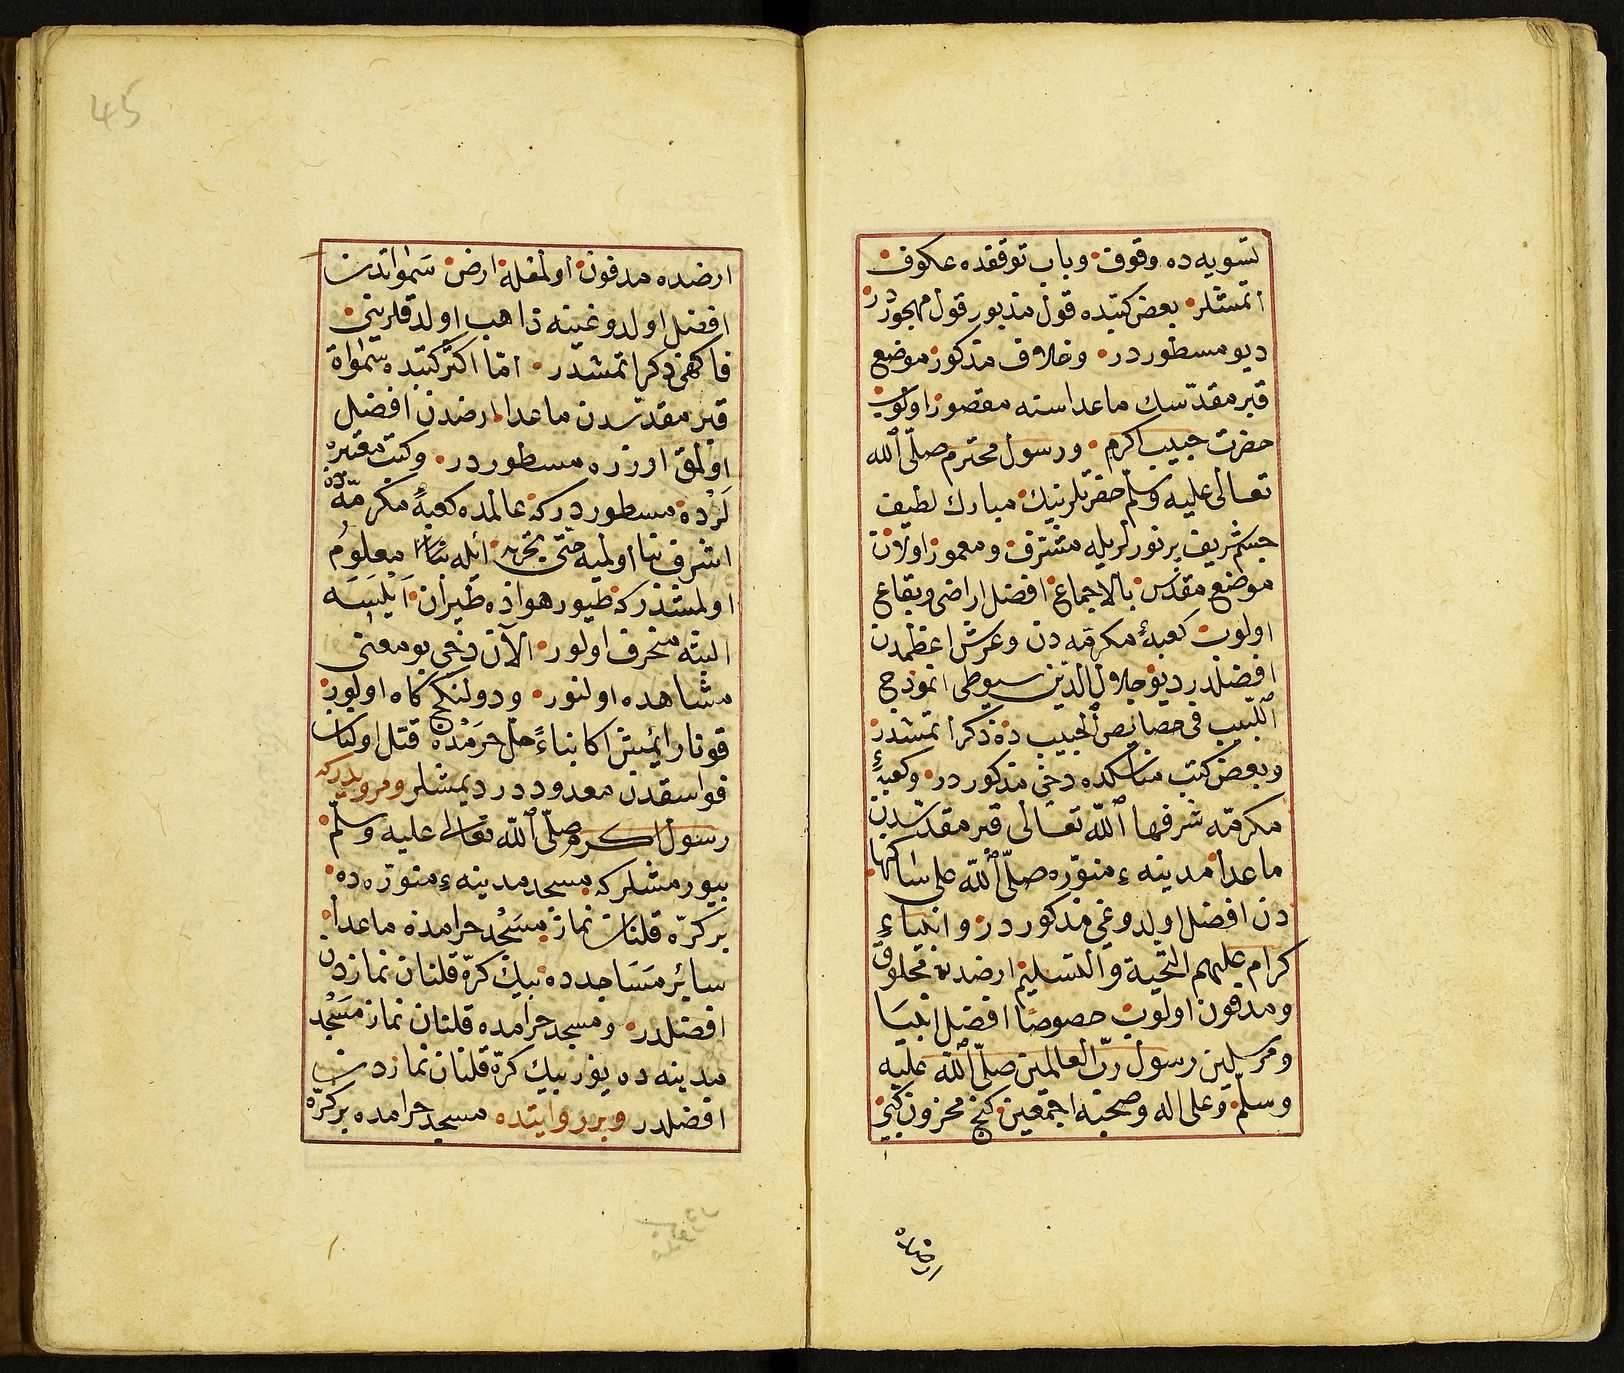 تسویه ده وقوف وباب توقفده عکوف
اتمشلر بعض کتبده قول مذبور قول مهجوردر
دیو مسطوردر وخلاف مذکور موضع
قبر مقدسك ماعداسنه مقصور اولوب
حضرت حبیب اکرم ورسول محترم صلّی الله
تعالی علیه وسلّم حضرتلرینك مبارك لطیف
جسم شریف پرنورلریله مشرف ومعمور اولان
موضع مقدس بالاجماع افضل اراضی وبقاع
اولوب کعبهٔ مکرمه دن وعرش اعظمدن
افضلدر دیو جلال الدین سیوطی انموذج
اللبیب فی خصایص الحبیب ده ذکر اتمشدر
وبعض کتب مناسکده دخی مذکوردر وکعبهٔ
مکرمّه شرفها الله تعالی قبر مقدّسدن
ماعدا مدینهٔ منوّره صلّی الله علی ساکنها
دن افضل اولدوغی مذکوردر وانبیاء
کرام علیهم التحیة والتسلیم ارضدن مخلوق
ومدفون اولوب خصوصا افضل انبیا
ومرسلین رسول ربّ العالمین صلّی الله علیه
وسلّم وعلی اله وصحبه اجمعین کنج مخزون کبی
ارضده
45
ارضده مدفون اولمغله ارض سمواتدن
افضل اولدوغینه ذاهب اولدقلرینی
فاکهی ذکر اتمشدر امّا اکثر کتبده سموات
قبر مقدّسدن ماعدا ارضدن افضل
اولمق اوزره مسطوردر وکتب معتبره
لرده مسطوردر که عالمده کعبهٔ مکرمّه دن
اشرف بنا اولمیه حتی تجربه ایله معلوم
اولمشدر که طیور هواده طیران ایلیسه
البته منحرف اولور الآن دخی بو معنی
مشاهده اولنور ودولنکج کاه اولور
قونار ایمیش اکا بناءً حلّ حرمده قتل اولنان
فواسقدن معدوددر دیمشلر ومرویدر که
رسول اکرم صلّی الله تعالی علیه وسلّم
بیورمشلر که مسجد مدینهٔ منوّره ده
بر کرّه قلنان نماز مسجد حرامدن ماعدا
سائر مساجدده بیك کرّه قلنان نمازدن
افضلدر ومسجد حرامده قلنان نماز مسجد
مدینه ده یوز بیك کرّه قلنان نمازدن
افضلدر وبر روایتده مسجد حرامده بر کرّه